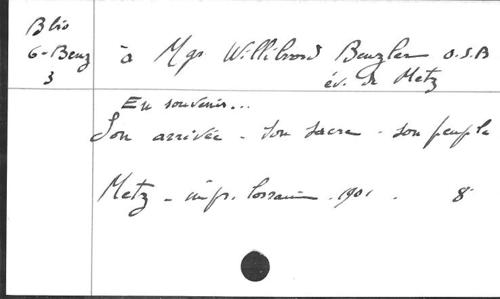 Blio
6-Benz
3
à Mgr Willibrord Benzler O.S.B
év. de Metz
En souvenir...
Son arrivée - Son sacre - son peuple
Metz - impr. lorraine . 1901 . 8°